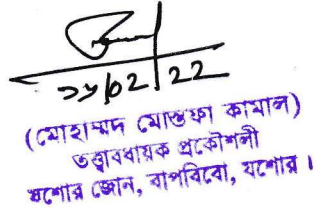 ২৮/02/22
(মোহাম্মদ মোস্তফা কামাল)
তত্ত্বাবধায়ক প্রকৌশলী
যশোর জোন, বাপবিবো, যশোর।